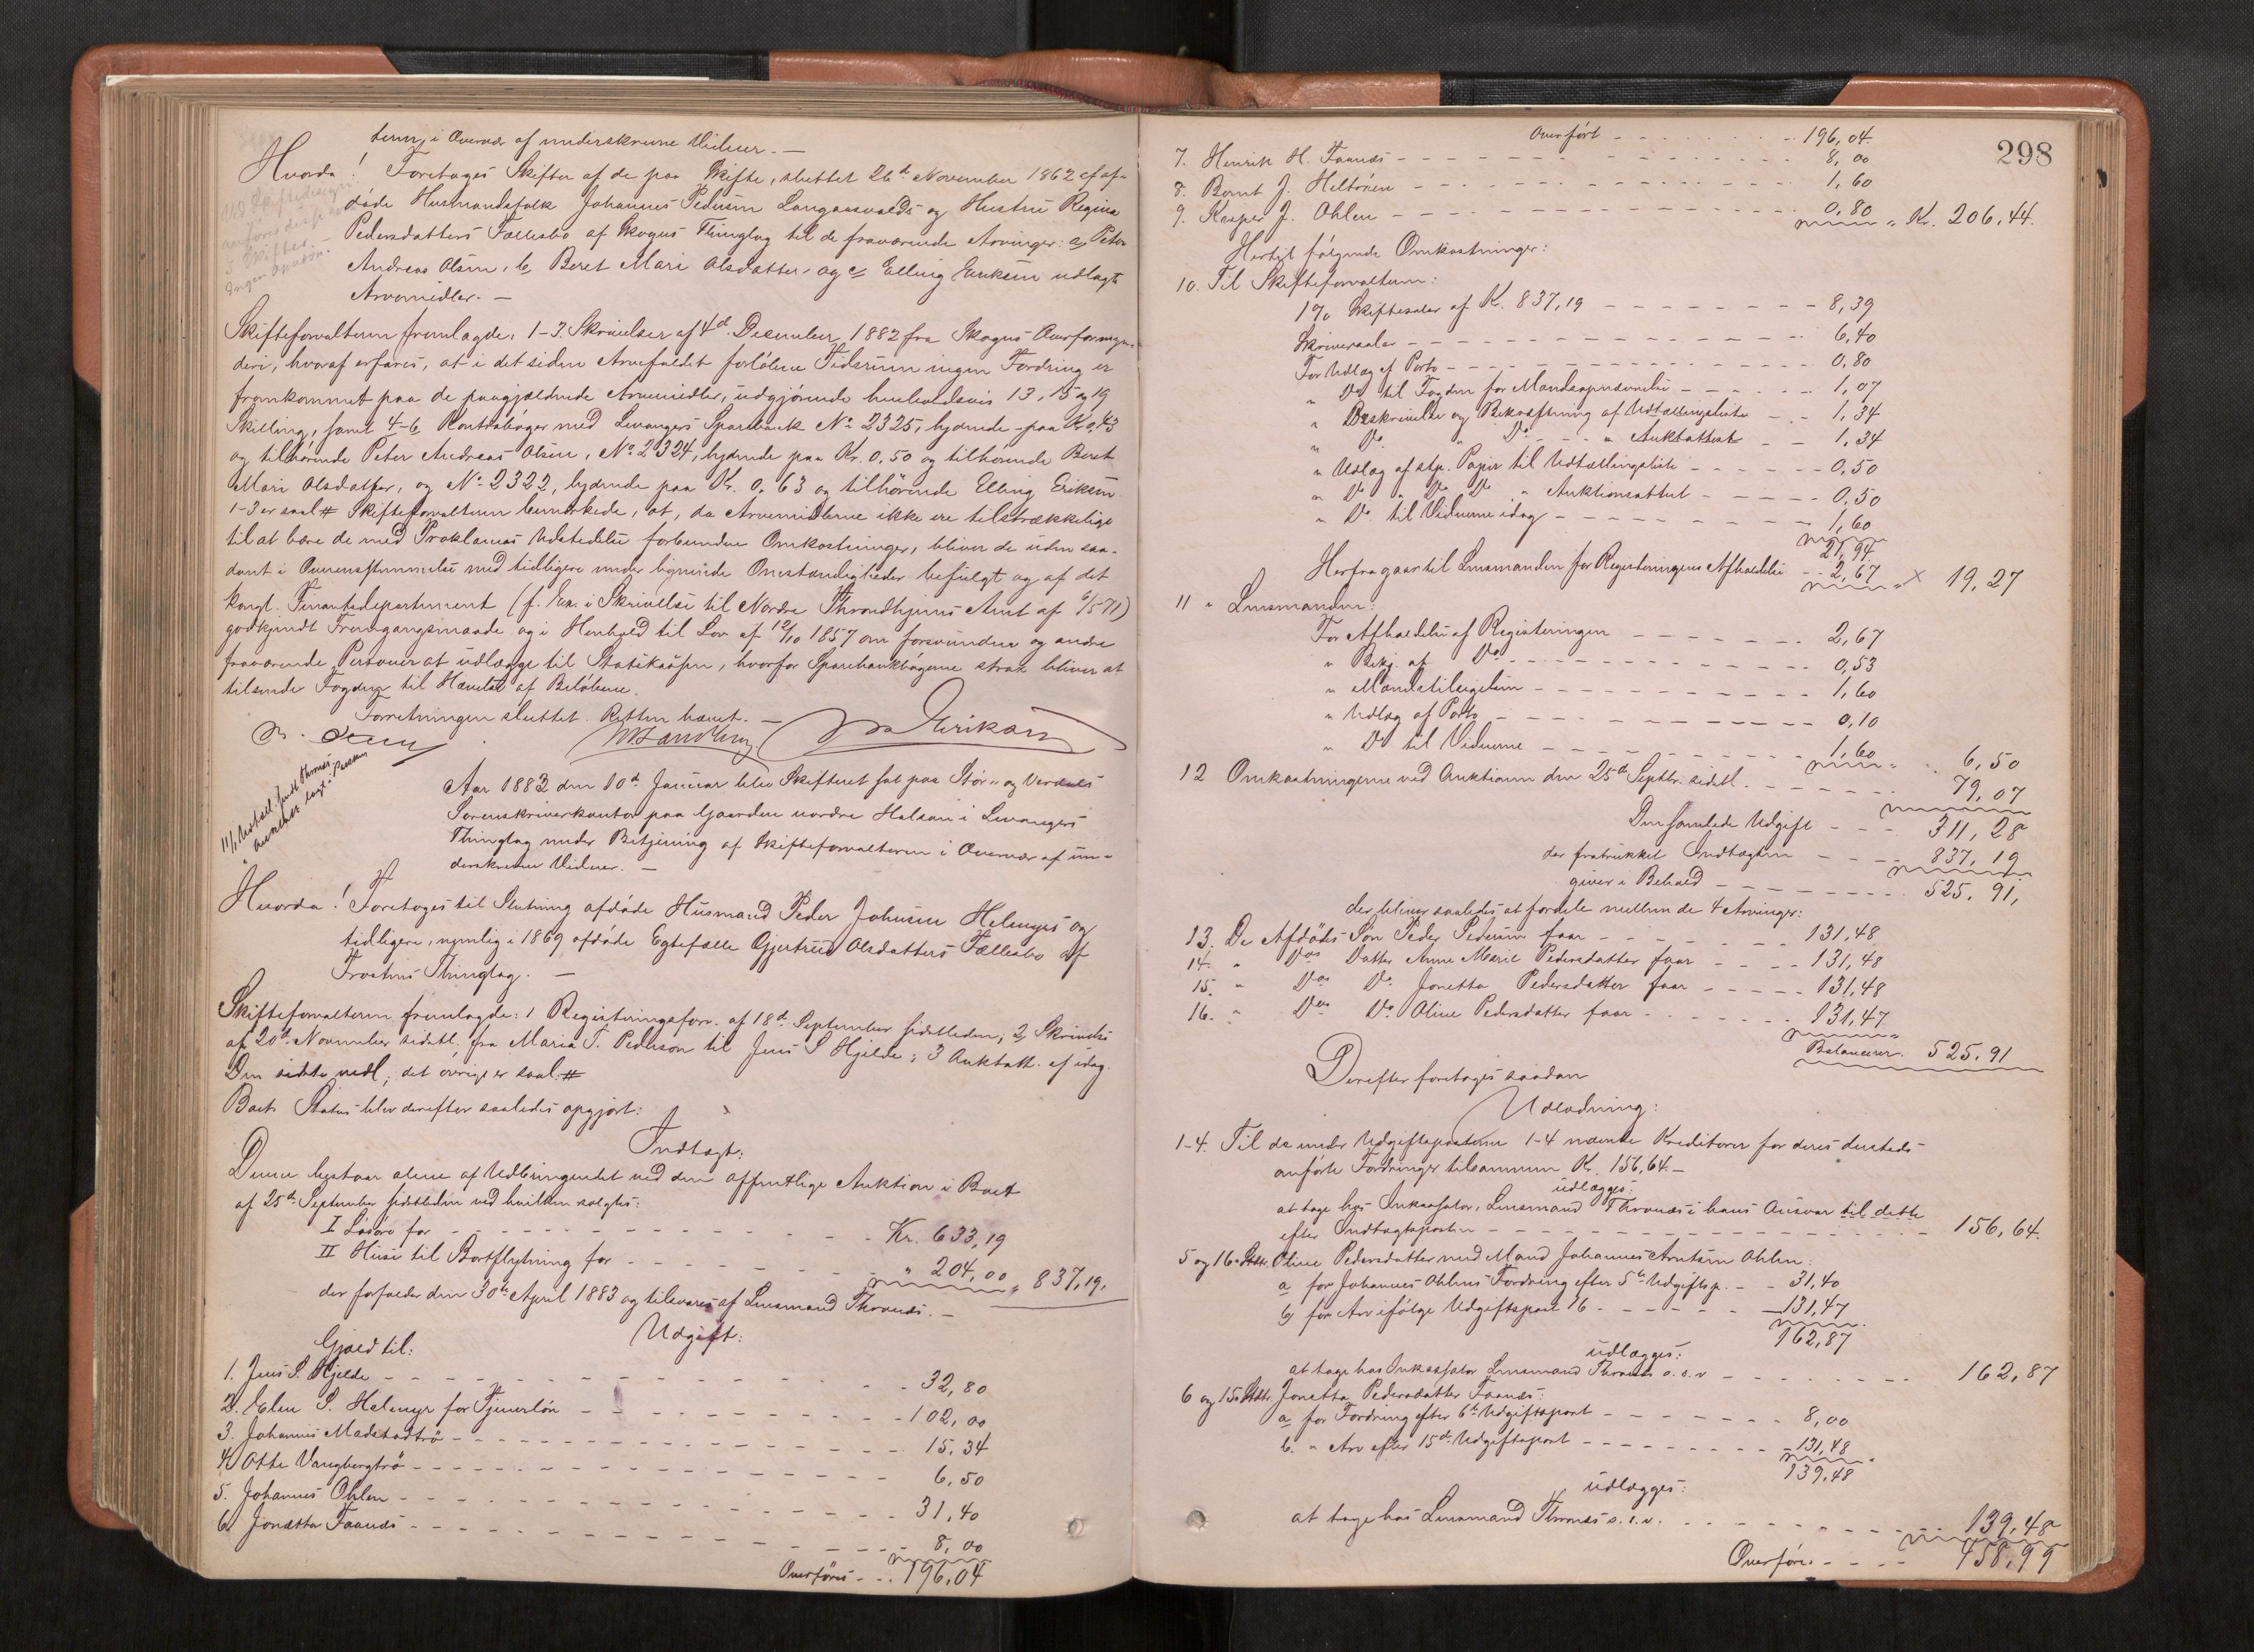 teren, i Overvær af underskrevne Vidner. —
Hvorda! Foretoges Skifter af de paa Skifte, sluttet 26d November 1862 ef af-
døde Husmandsfolk Johannes Pedersen Langaasvalds og Hustru Regina
Pedersdatters Fællesbo af Skogns Thinglag til de fraværende Arvinger: a, Peter
Andreas Olsen, b, Beret Mari Olsdatter, og c, Elling Eriksen udlagte
Arvemidler. —
Skifteforvalteren fremlagde: 1-3. Skrivelser af 4d December 1882 fra Skogns Overformyn-
deri, hvoraf erfares, at i det siden Arvefaldet forløbne Tidsrum ingen Fordring er
fremkommet paa de paagjældende Arvemidler, udgjørende henholdsvis 13, 15 og 19
Skilling, samt 4-6, Kontrabøger med Levangers Sparebank No 2325, lydende paa Kr 0,43
og tilhørende Peter Andreas Olsen, No 2324, lydende paa Kr. 0,50 og tilhørende Beret
Mari Olsdatter, og No 2322, lydende paa Kr. 0,63 og tilhørende Elling Eriksen
1-3 er saal # Skifteforvalteren bemærkede, at, da Arvemidlerne ikke ere tilstrækkelige
til at bære de med Proklamas Udstedelse forbundne Omkostninger, bliver de uden saa-
dant i Overensstemmelse med tidligere under lignende Omstændigheder befulgt og af det
kongl. Finantsdepartement (f. Ex. i Skrivelse til Nordre Throndhjems Amt af 6/5 71)
godkjendt Fremgangsmaade og i Henhold til Lov af 12/10 1857 om forsvundne og andre
fraværende Personer at udlægge til Statskassen, hvorfor Sparebankbøgerne strax bliver at
tilsende Fogden til Hævelse af Beløbene.
Forretningen sluttet. Retten hævet. —
Aar 1883 den 10d Januar blev Skifteret sat paa Stør- og Værdals
Sorenskriverkontor paa Gaarden nordre Halsan i Levangers
Thinglag under Betjening af Skifteforvalteren i Overvær af un-
derskrevne Vidner. —
Hvorda! Foretoges til Slutning afdøde Husmand Peder Johnsen Helmyrs og
tidligere, nemlig i 1869 afdøde Egtefælle Gjertrud Olsdatters Fællesbo af
Frostens Thinglag. —
Skifteforvalteren fremlagde: 1 Registeringsforr. af 18d September sidstleden; 2, Skrivelse
af 20d November sidstl. fra Maria T. Pederson til Jens S Hjelde; 3 Auktatt. af idag.
Den sidste vedl; det øvrige er saal: #
Boets Status blev derefter saaledes opgjort:
Indtægt:
Denne bestaar alene af Udbringendet ved den offentlige Auktion i Boet
af 25d September sidstleden ved hvilken solgtes:
I Løsøre for - - - Kr. 633,19
II Huse til Bortflytning for - - - " 204,00 " 837,19.
der forfalder den 30te April 1883 og tilsvares af Lensmand Thronæs. —
Udgift:
Gjæld til:
1. Jens S. Hjelde - - - 32,80
2. Elen S. Helmyr for Tjenerløn - - - 102,00
3. Johannes Madstadtrø - - - 15,34
4. Otte Vangbergtrø - - - 6,50
5. Johannes Ohlen - - - 31,40
6. Jonetta Faanæs - - - 8,00
Overføres - - 196,04
298
Overført - - - 196,04.
7. Henrik H. Faanæs - - - 8,00
8. Bernt J. Heltrøen - - - 1,60
9. Kasper J. Ohlen - - - 0,80 " Kr. 206,44.
Hertil følgende Omkostninger:
10. Til Skifteforvalteren:
1% Skiftesalær af Kr. 837,19 - - - 8,39
Skriversalær - - - 6,40
For Udlæg af Porto - - - 0,80
" Do til Fogden for Mandsopnævnelse - - - 1,07
" Beskrivelse og Bekræftning af Udtællingsliste - - 1,34
" Do " Do - - " Auktattest - - 1,34
" Udlæg af stp. Papir til Udtællingsliste - - - 0,50
" Do " Do Do " Auktionsattest - - - 0,50
" Do til Vidnerne idag - - - 1,60
21,94
Herfra gaar til Lensmanden for Registeringens Afholdelse - - 2,67 " 19,27
11 " Lensmanden:
For Afholdelse af Registeringen - - - 2,67
" Bekj. af Do - - - 0,53
" Mandstilsigelsen - - - 1,60
" Udlæg af Porto - - - 0,10
" Do til Vidnerne - - - 1,60 " 6,50
12 Omkostningerne ved Auktionen den 25d Septbr. sidstl. - - - 79,07
Den samlede Udgift - - - 311,28
der fratrukket Indtægten - - - 837,19
giver i Behold - - - 525,91,
der bliver saaledes at fordele mellem de 4 Arvinger:
13. De Afdødes Søn Peder Pedersen faar - - - 131,48
14. " Dos Datter Anne Marie Pedersdatter faar - - - 131,48
15. " Dos Do Jonetta Pedersdatter faar - - - 131,48
16. " Dos Do Oline Pedersdatter faar - - - 131,47
Balancerer. 525,91
Derefter foretoges saadan
Udlodning:
1-4. Til de under Udgiftsposterne 1-4 nævnte Kreditorer for deres dersteds
anførte Fordringer tilsammen Kr. 156,64. —
udlægges:
at tage hos Inkassator, Lensmand Thronæs i hans Ansvar til dette
efter Indtægtsposten - - - 156,64.
5 og 16. Oline Pedersdatter med Mand Johannes Arntsen Ohlen:
a for Johannes Ohlens Fordring efter 5te Udgiftsp. - - 31,40
b, for Arv ifølge Udgiftspost 16 - - - 131,47
162,87
udlægges:
at tage hos Inkassator Lensmand Thronæs o.s.v - - - 162,87
6 og 15. Jonetta Pedersdatter Faanæs:
a, for Fordring efter 6te Udgiftspost - - - 8,00
b. " Arv efter 15de Udgiftspost - - - 131,48
139,48
udlægges:
at tage hos Lensmand Thronæs o.s.v. - - - 139,48
Overføres - - - 458,99